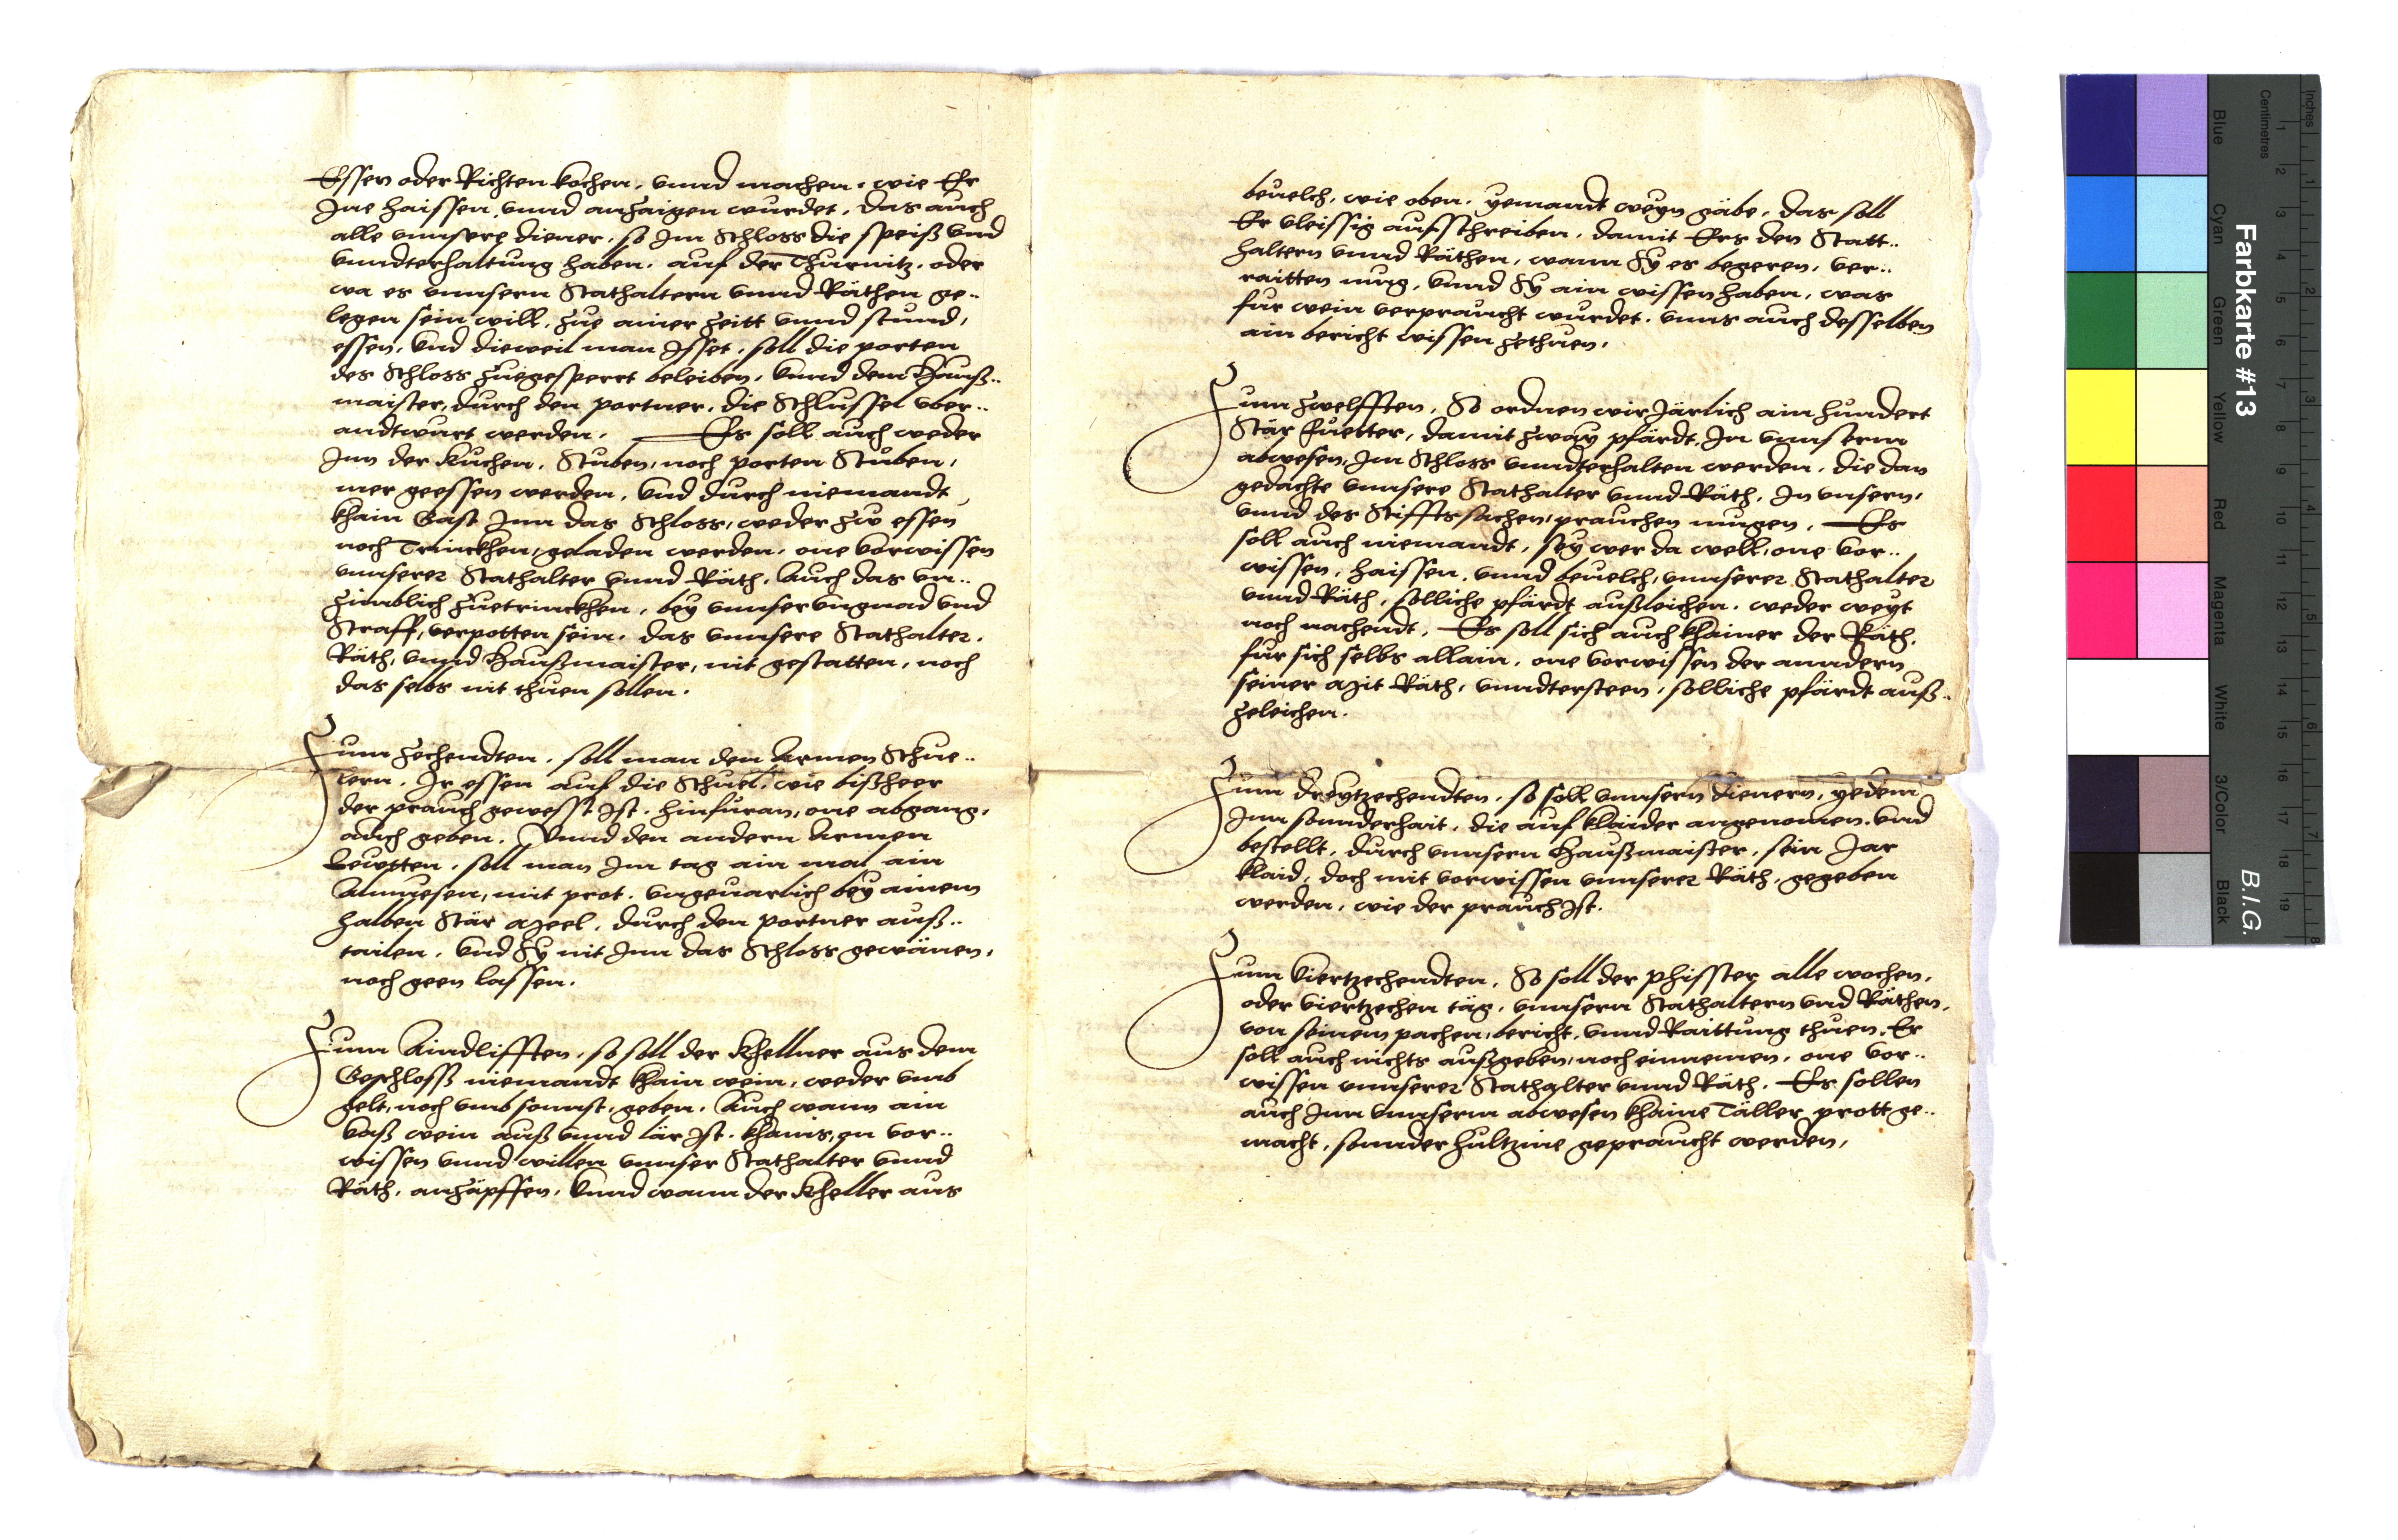 Essen oder Richten kochen, vnnd machen, wie Er
Ine haissen, vnnd anzaigen wurdet, das auch
alle vnnsere diener, so Im Schloss die speiß vnd
vnndterhaltung haben, auf der Thurnitz, oder
wa es vnnsern Stathaltern vnnd Räthen ge¬
legen sein will, zue ainer zeitt vnnd stund,
essen, vnd dieweil man Isset, soll die porten
des Schloss zuegesperrt beleiben, vnnd dem Hauß¬
maister, durch den portner, die Schlussel vber¬
andtwurt werden. Es soll auch weder
Inn der Kuchen, Stuben, noch porten Stuben,
mer geessen werden, vnd durch niemandt
khain Gast Inn das Schloss, weder zw essen
noch Trinckhen, geladen werden, one vorwissen
vnnserer Stathalter vnnd Räth, Auch das vn¬
zimblich zuetrinckhen, bey vnnser vngnad vnd
Straff, verpotten sein, das vnnsere Stathalter,
Räth, vnnd Haußmaister, nit gestatten, noch
das selbs nit thuen sollen.
Zum zechendten, soll man den Armen Schue¬
lern, Ir essen auf die Schuel, wie bißheer
der prauch gewesst Ist, hinfuran, one abgang,
auch geben, Vnnd den andern Armen
Lewtten, soll man Im tag ain mal ain
Almuesen, mit prot, vngeuarlich bey ainem
halben Stär Meel, durch den portner auß¬
tailen, vnd Sy nit Inn das Schloss gewänen,
noch geen lassen.
Zum Aindlifften, so soll der Khellner aus dem
Geschlosß niemandt khain wein, weder vmb
gelt, noch vmb sonnst, geben, Auch wann ain
vaß wein auß vnnd lär Ist, khains, on vor¬
wissen vnnd willen vnnser Stathalter vnnd
Räth, anzäpffen, vnnd wann der Kheller aus
beuelch, wie oben, yemandt weyn gäbe, das soll
Er vleissig aufschreiben, damit Ers den Statt¬
haltern vnnd Räthen, wann Sy es begeren, ver¬
raitten mug, vnnd Sy ain wissen haben, was
fur wein verpraucht wurdet, vnns auch desselben
ain bericht wissen zethuen.
Zum zwelfften, So ordnen wir Järlich ain hundert
Stär fuetter, damit zway pfärdt, In vnnserm
abwesen, Im Schloss vnndterhalten werden, die dan
gedachte vnnsere Stathalter vnnd Räth, In vnsern,
vnnd des Stiffts sachen, prauchen mugen, Es
soll auch niemandt, sey wer da well, one vor¬
wissen, haissen, vnnd beuelch, vnnserer Stathalter
vnnd Räth, solliche pfärdt außleichen, weder weyt
noch nachendt, Es soll sich auch khainer der Räth,
fur sich selbs allain, one vorwissen der anndern
seiner Mit Räth, vnndtersteen, solliche pfärdt auß¬
zeleichen.
Zum dreytzechendten, so soll vnnsern dienern, yedem
Inn sonnderhait, die auf klaider angenomen, vnd
bestellt, durch vnnsern Haußmaister, sein Jar
klaid, doch mit vorwissen vnnserer Räth, gegeben
werden, wie der prauch Ist.
Zum Viertzechendten, So soll der Phisster alle wochen,
oder viertzechen täg, vnnsern Stathaltern vnd Räthen,
von seinem pachen, bericht, vnnd Raittung thuen, Er
soll auch nichts außgeben, noch einnemen, one vor¬
wissen vnnserer Stathalter vnnd Räth. Es sollen
auch Inn vnnserm abwesen khaine Täller prott ge¬
macht, sonnder hultzine gepraucht werden,
Farbkarte #13
B.I.G.
Inches
Centimetres
Blue
Cyan
Green
Yellow
Red
Magenta
White
3/Color
Black
1
2
3
4
5
6
7
8
9
10
11
12
13
14
15
16
17
18
19
1
2
3
4
5
6
7
8